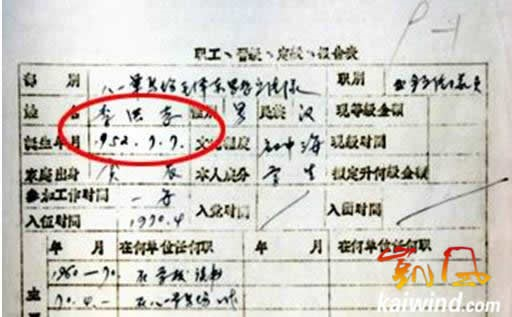 P-1
职工、晋级、定级、议价表
部 别 八一军马场毛泽东思想宣传队 职别
姓 名 李洪志 性别 男 民族 汉 现等级金额
诞生年月 1952.7.7. 文化程度 初中 现级时间
家庭出身 本人成分 学生 拟定升何级金额
参加工作时间 入党时间 入团时间
入伍时间 1970.4
年 月 在何单位任何职 年 月 在何单位任何职
1960—70. 在学校读书
70.4.— 在八一军马场
凯风
kaiwind.com